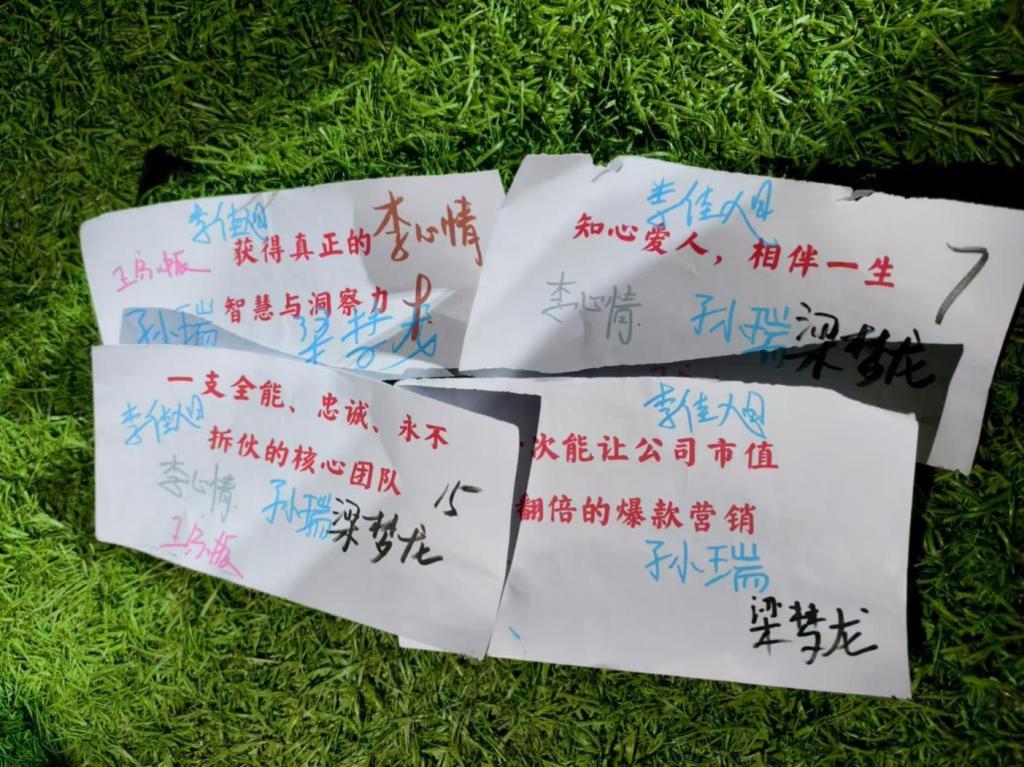 李佳
获得真正的 李心情
智慧与洞察力
孙瑞
李佳
知心爱人，相伴一生
7
李心情 孙瑞 梁梦龙
一支全能、忠诚、永不
李佳
拆伙的核心团队
李心情 孙瑞 梁梦龙 15
李佳
次能让公司市值
翻倍的爆款营销
孙瑞
梁梦龙